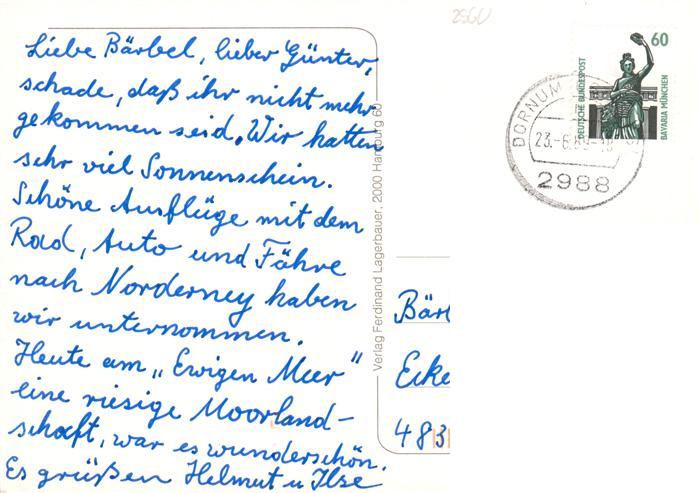 Liebe Bärbel, lieber Günter,
schade, daß ihr nicht mehr
gekommen seid. Wir hatten
sehr viel Sonnenschein.
Schöne Ausflüge mit dem
Rad, Auto und Fähre
nach Norderney haben
wir unternommen.
Heute am „Ewigen Meer"
eine riesige Moorland-
schaft, war es wunderschön.
Es grüßen Helmut u Ilse
Verlag Ferdinand Lagerbauer, 2000 Hamburg 60
60
DEUTSCHE BUNDESPOST
BAYARIA MÜNCHEN
DORNUM
2988
Bär
Ecke
483